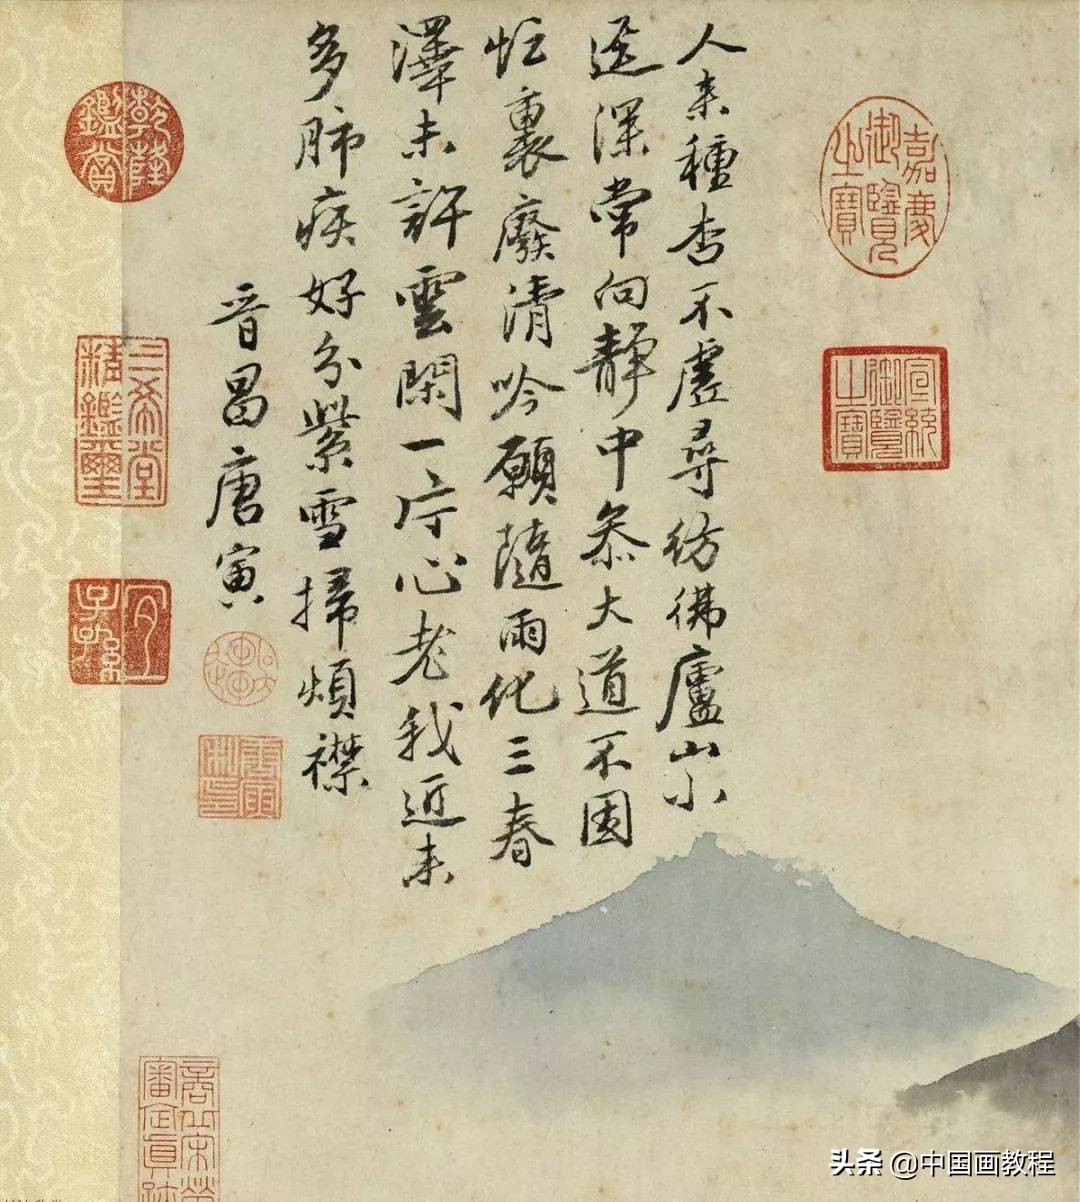 嘉慶
御覽
之寶
宣統
御覽
之寶
人來種杏不虛尋彷彿廬山小
逕深常向靜中參大道不因
忙裏廢清吟願隨雨化三春
澤未許雲閑一片心老我近來
多肺疾好分紫雪掃煩襟
晉昌唐寅
乾隆
鑑賞
三希堂
精鑑璽
宜
子孫
商丘宋犖
審定真跡
头条 @中国画教程